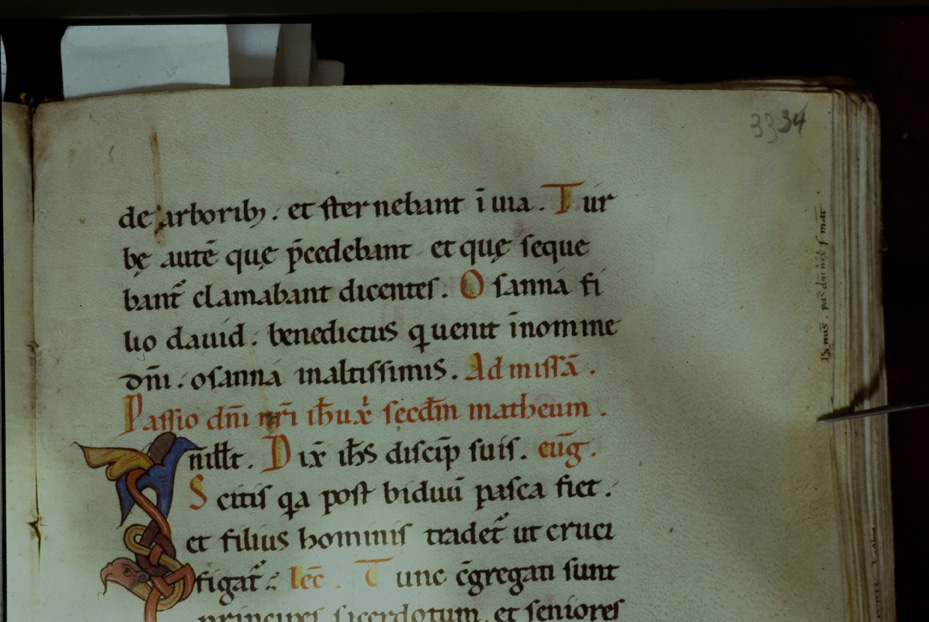 3334
de arborib; . et sternebant ī uia . Tur
bę autē quę p̄cedebant et quę seque
bant᷑ clamabant dicentes . Osanna fi
lio dauid . benedictus q̇ uenit īnomine
dn̄i . osanna inaltissimis . Ad missā .
Passio dn̄i nr̄i ih̄u xp̄i secd̄m matheum .
In ill̄t . Dix̄ ih̄s discip̄ suis . eūg .
Scitis q̇a post biduū pasca fiet .
et filius hominis tradet᷑ ut cruci
figat᷑ . lec̄ . Tunc c̄gregati sunt
principes sacerdotum . et seniores